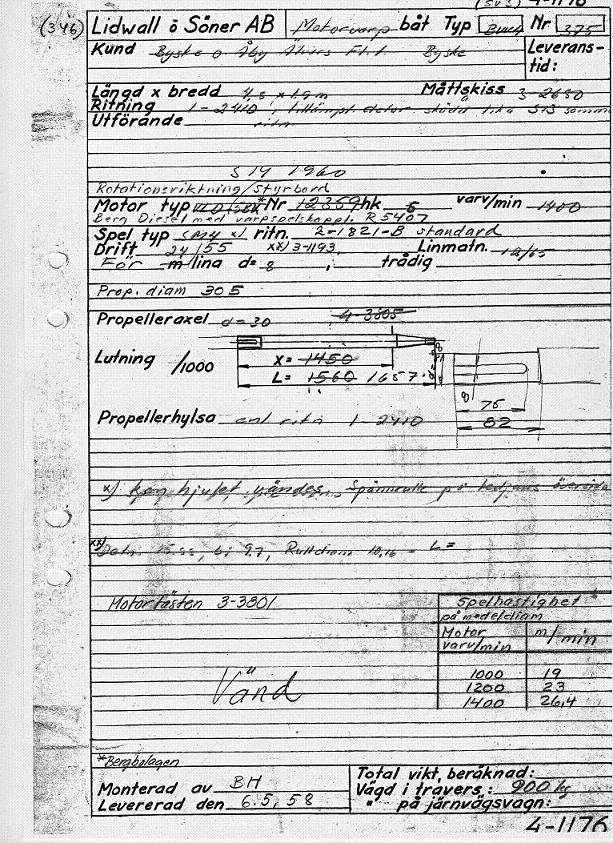 4-1176
(346) Lidwall ö Söner AB Motorvarp båt Typ Nr 375
Kund Byske o. Åby Älvars Fl.f. Byske Leverans-
tid:
Längd x bredd 4,8 x 1,9 m Måttskiss 3-2680
Ritning 1-2410, tillämpl. delar lika
Utförande ritn
S 14 1960
Rotationsriktning/Styrbord
Motor typ *Nr 12359 hk 6 varv/min 1400
Berg Diesel med varpspelskoppl. R5407
Spel typ x) ritn. 2-1821-B standard
Drift 24/55 xx) 3-1193 Linmatn. 12/65
För m/lina d= 8, trådig
Prop. diam 305
Propelleraxel d=30 4-3805
Lutning /1000 X= 1450
L= 1560 1657
8
75
82
Propellerhylsa enl ritn 1-2410
x) hjulet vändes. på översida
xx) 15.88, bi 9.7, Rulldiam 10.16 - L=
Motorfästen 3-3801
Spelhastighet
på medeldiam
Motor varv/min m/min
1000 19
1200 23
1400 26,4
Vänd
*Bergbolagen
Monterad av BH
Levererad den 6.5.58
Total vikt, beräknad:
Vägd i travers: 900 kg
" på järnvägsvagn:
4-1176